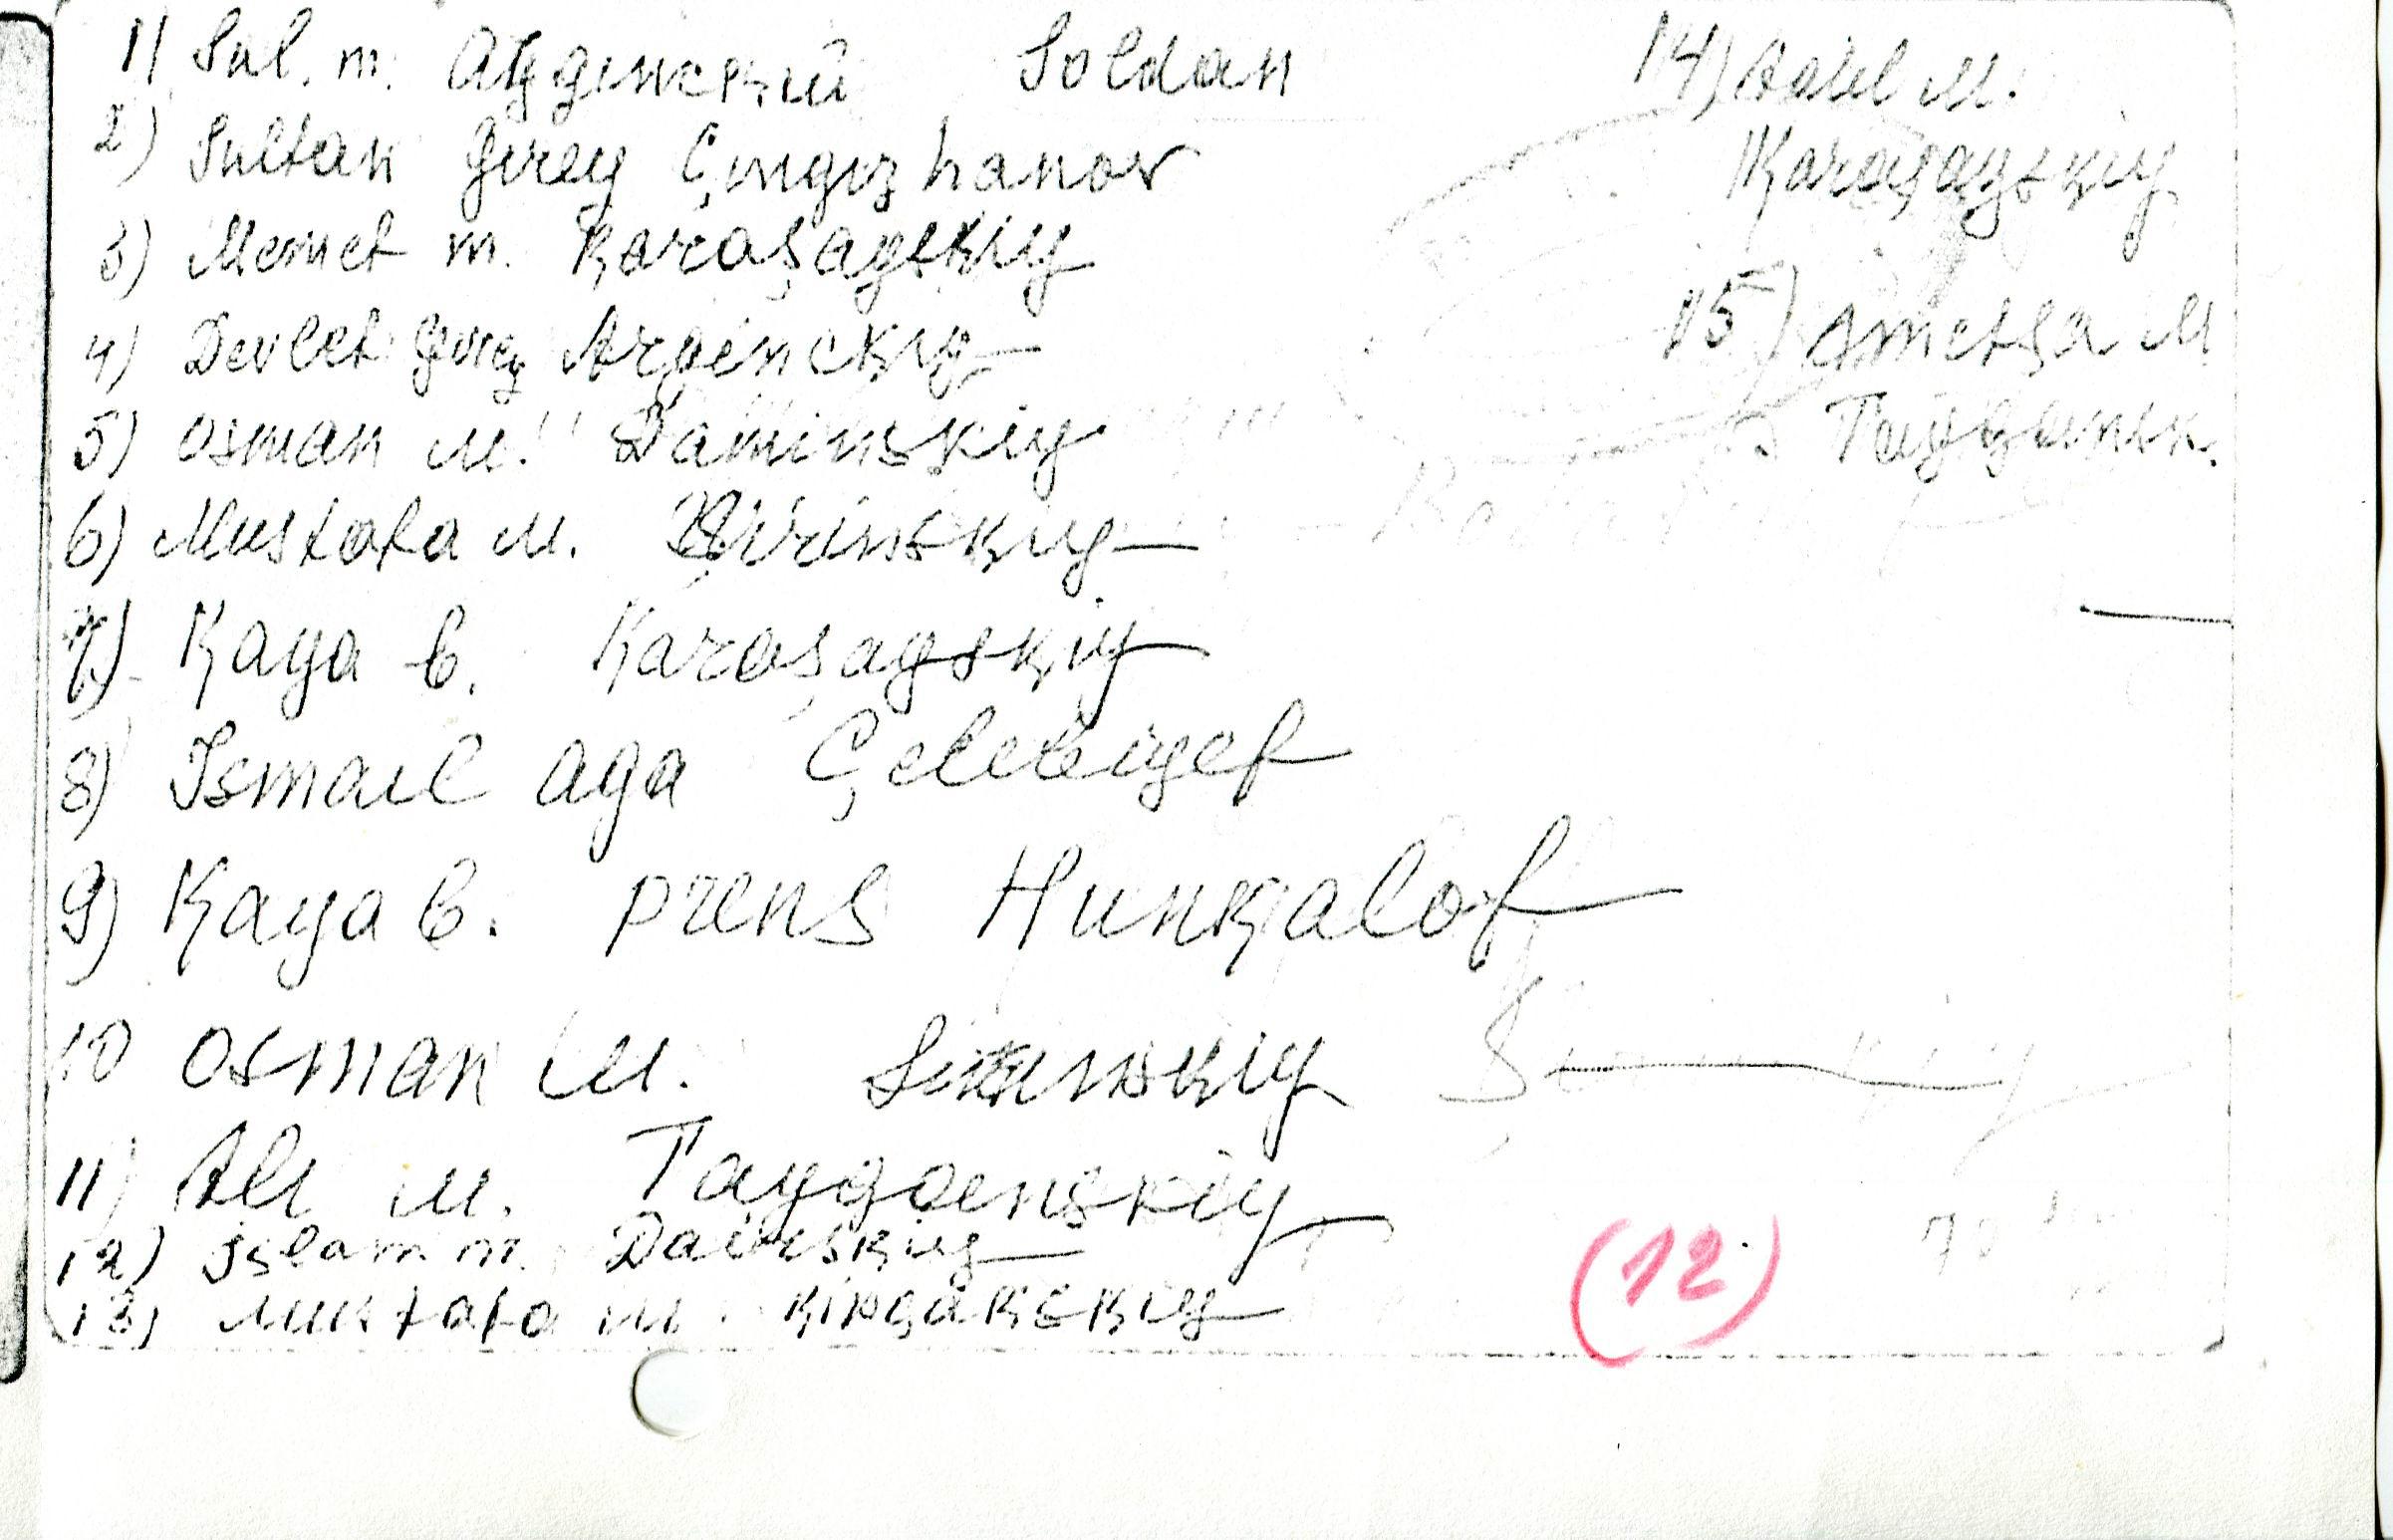 1) Sul. m. Soldan
2) Sultan Girey Çıngızhanov
3) Memet m. Karaşayskiy
4) Devlet Girey Arginckiy
5) Osman M. Daminskiy
6) Mustafa M.
7) Kaya b. Karaşayskiy
8) Ismaıl aga Çelebiyef
9) Kaya b. prens Hunkalof
10 Osman M.
11) Alı M. Tayganskiy
12) İslam m. Dairskiy
13) Mustafa M. Kipçakskiy
14) Adil M.
Karaşayskiy
15) Ametşa M
Taygansk.
(12)